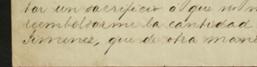 tar un sacrificio ó que no m
reembolsarme la cantidad
Jimenez, que de otra mane